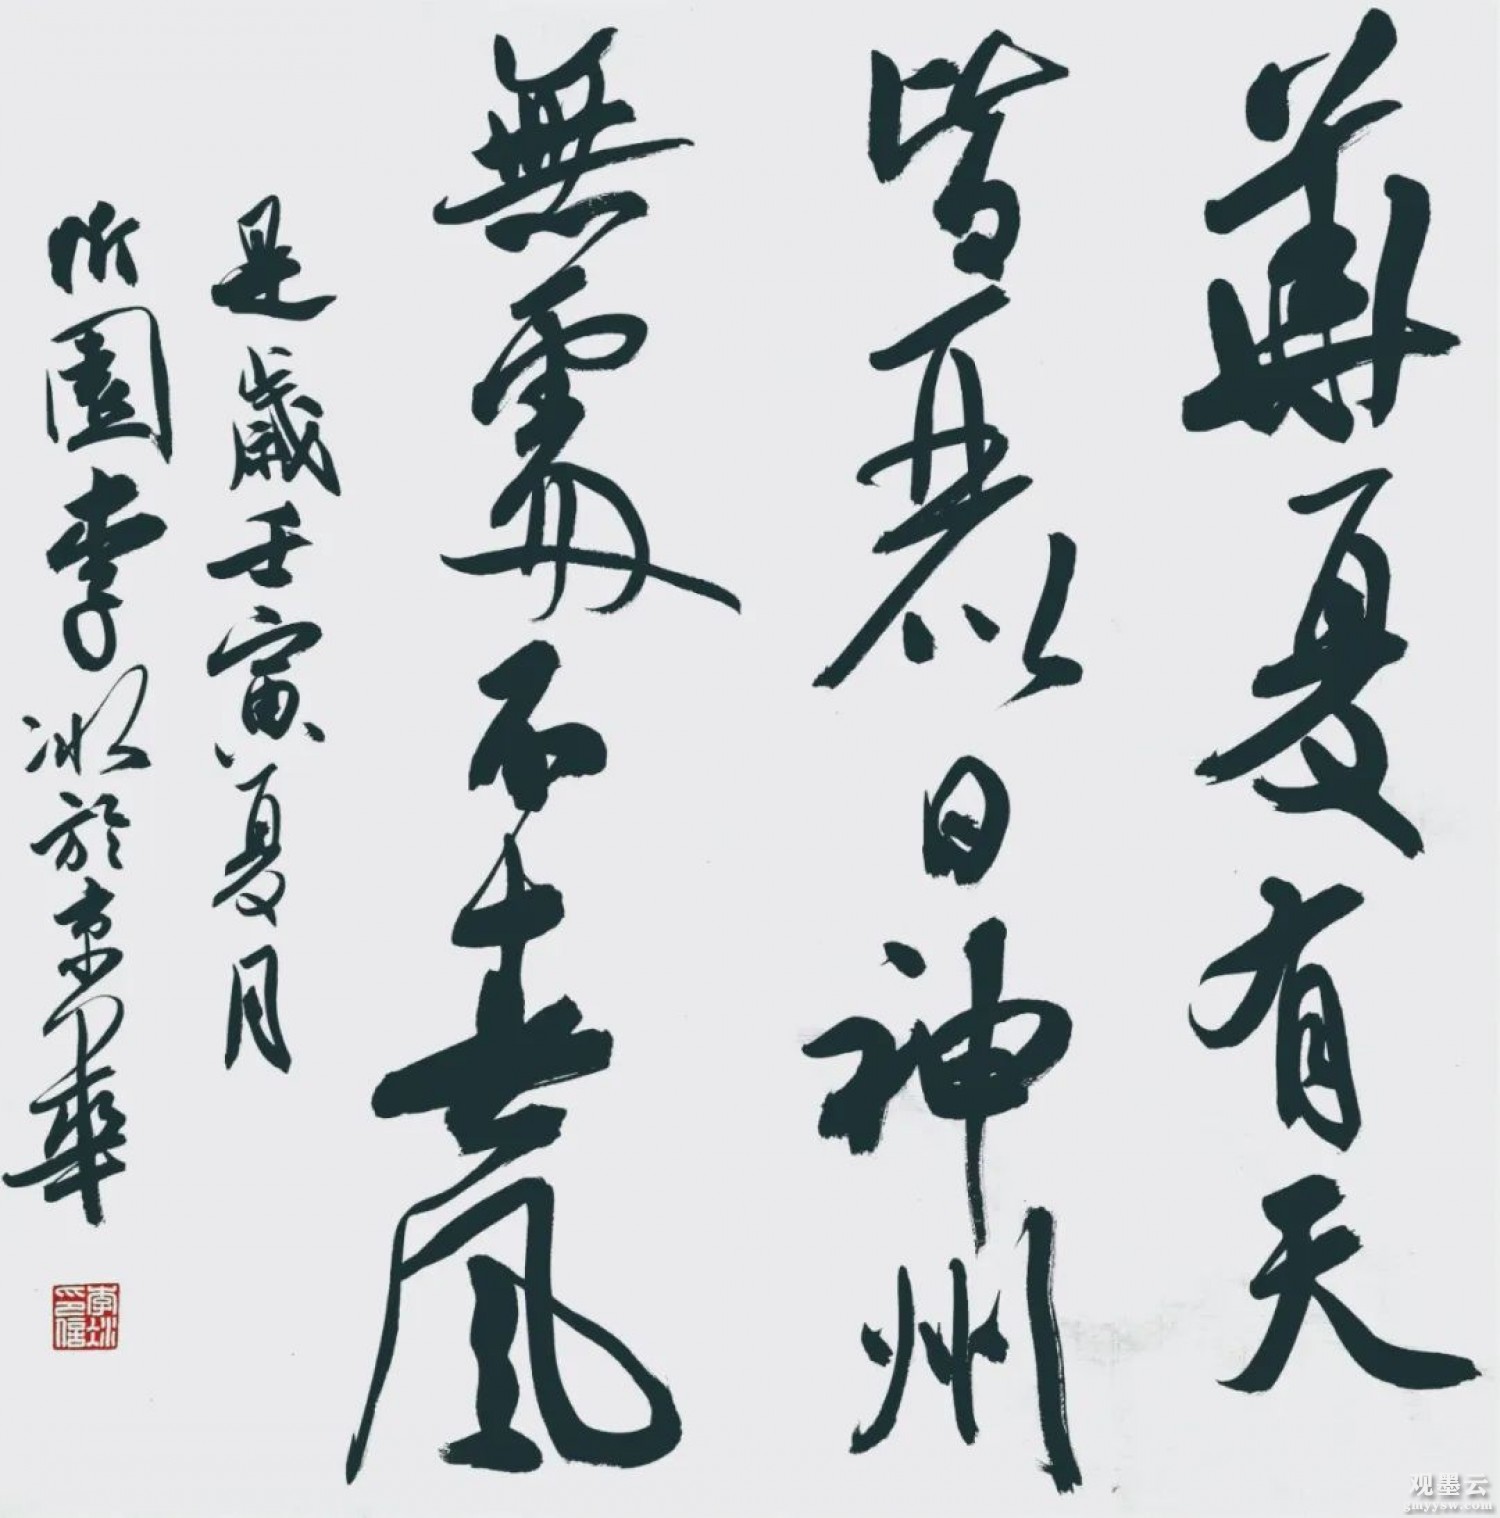 華夏有天
皆麗日神州
無處不春風
是歲壬寅夏月
忻園李冰於京華
李冰印信
观墨云
gmyysw.com